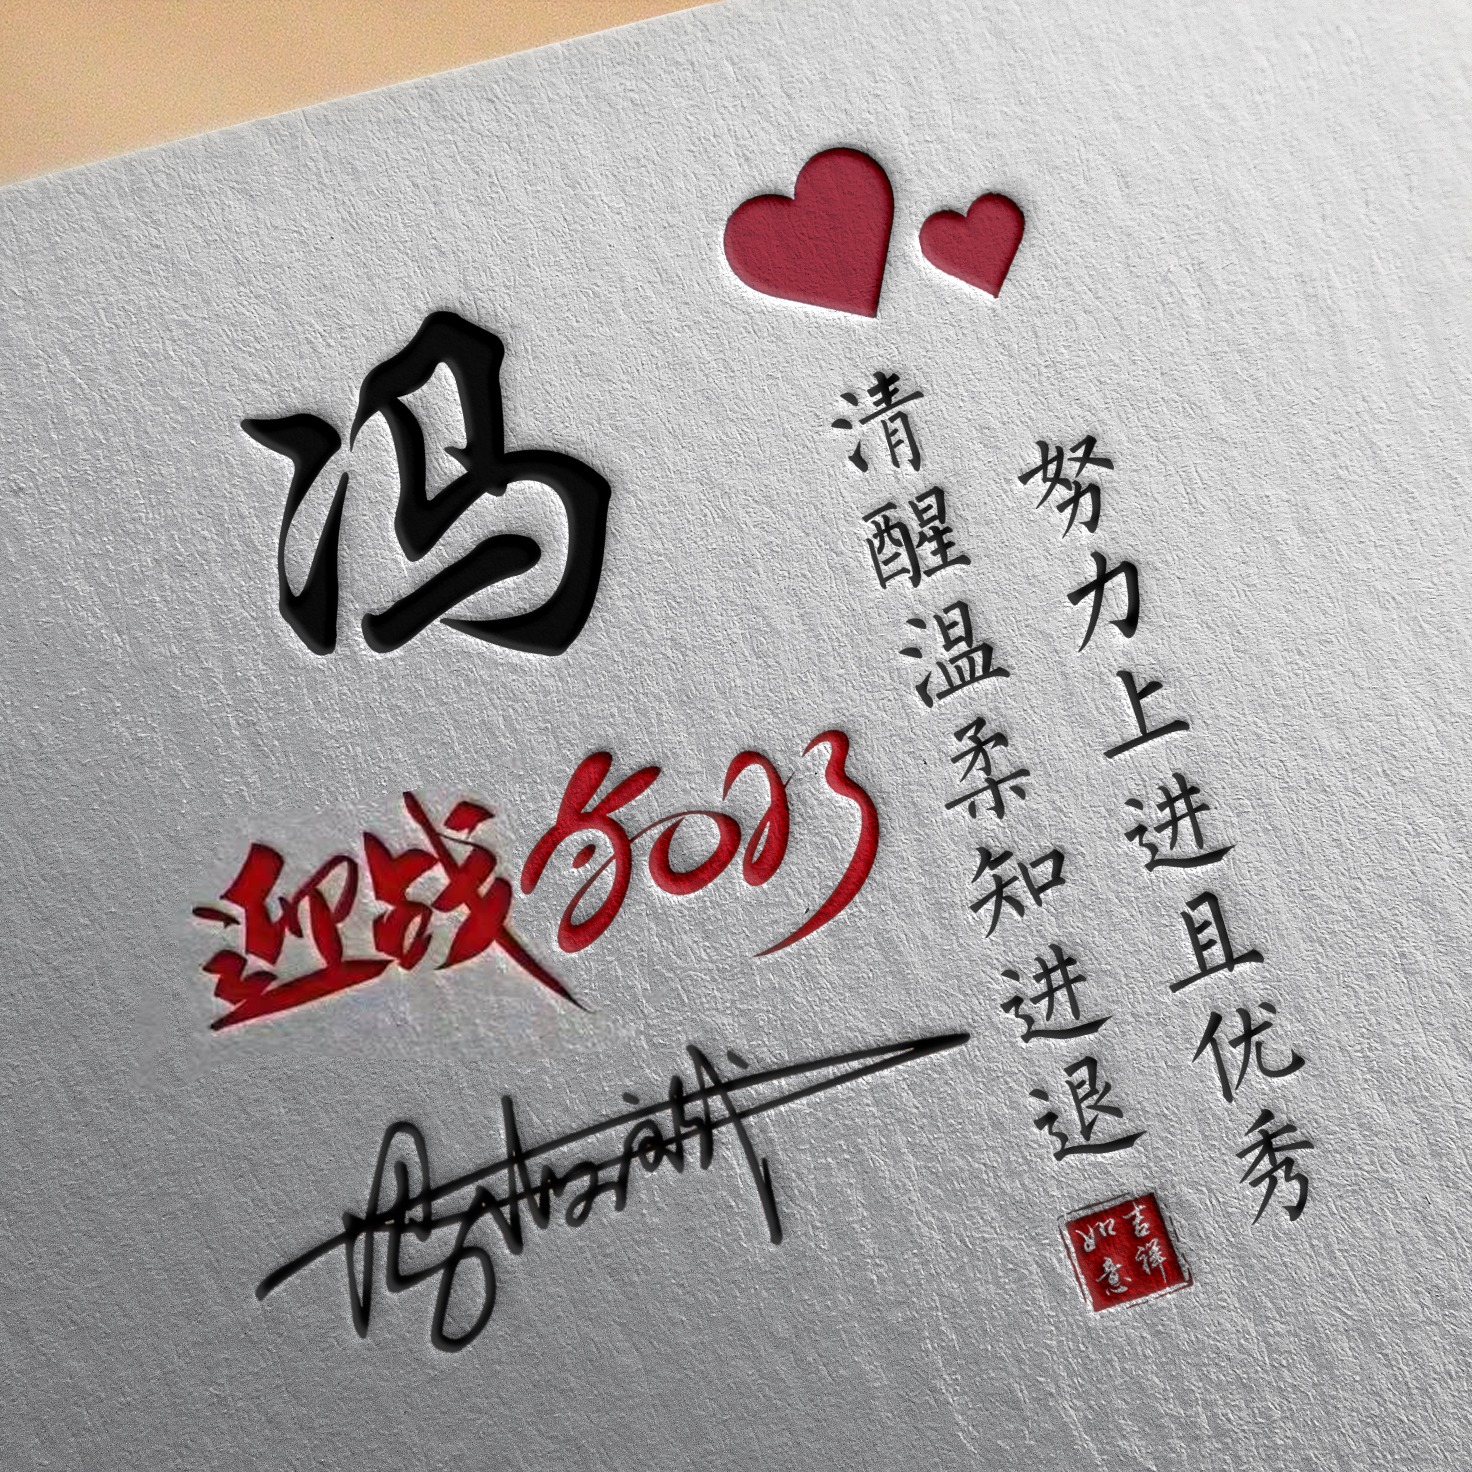 冯
努力上进且优秀
清醒温柔知进退
迎战2023
吉祥
如意